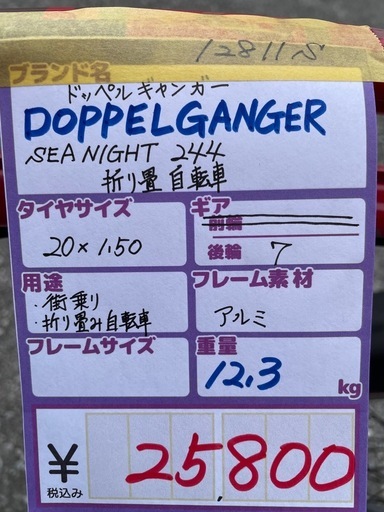 12811S
ブランド名
ドッペルギャンガー
DOPPELGANGER
SEA NIGHT 244
折り畳 自転車
タイヤサイズ
20×1.50
ギア
前輪
後輪 7
用途
・街乗り
・折り畳み自転車
フレーム素材
アルミ
フレームサイズ
重量
12.3 kg
¥ 25,800
税込み